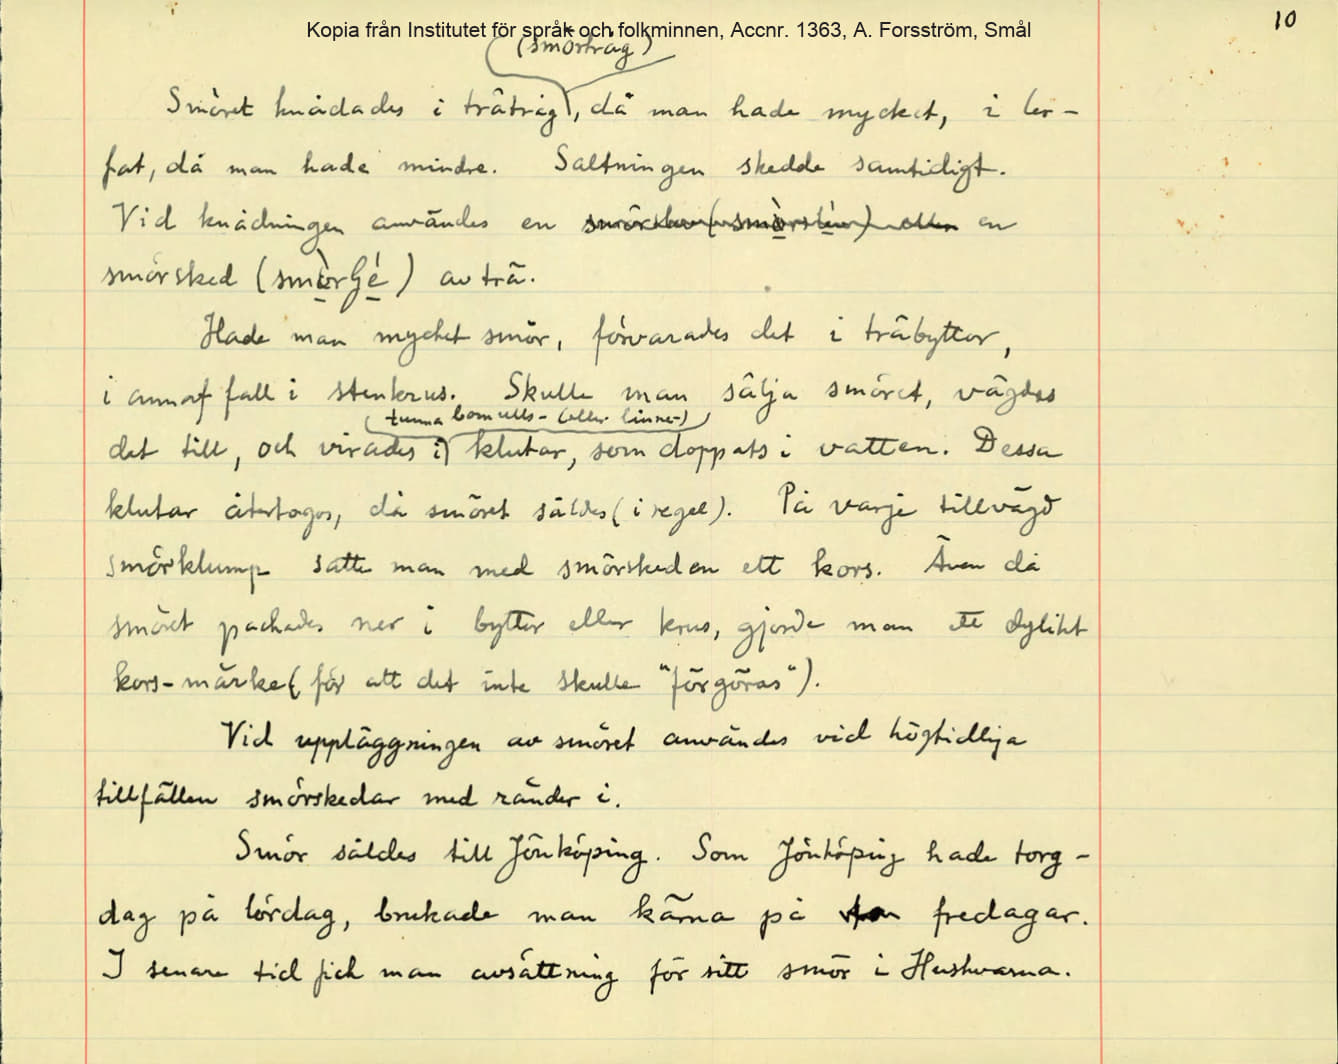 10
Kopia från Institutet för språk och folkminnen, Accnr. 1363, A. Forsström, Smål
(smörtråg)
Smöret knådades i träträg, då man hade mycket, i ler-
fat, då man hade mindre. Saltningen skedde samtidigt.
Vid knådningen användes en smörslev (smòrslév) eller en
smörsked (smòrʃé) av trä.
Hade man mycket smör, förvarades det i träbyttor,
i annat fall i stenkrus. Skulle man sälja smöret, vägdes
tunna bomulls- (eller linne-)
det till, och virades i klutar, som doppats i vatten. Dessa
klutar återtogos, då smöret såldes (i regel). På varje tillvägd
smörklump satte man med smörskeden ett kors. Även då
smöret packades ner i byttor eller krus, gjorde man ett dylikt
kors-märke (för att det inte skulle "förgöras").
Vid uppläggningen av smöret användes vid högtidliga
tillfällen smörskedar med ränder i.
Smör såldes till Jönköping. Som Jönköping hade torg-
dag på lördag, brukade man kärna på fredagar.
I senare tid fick man avsättning för sitt smör i Huskvarna.